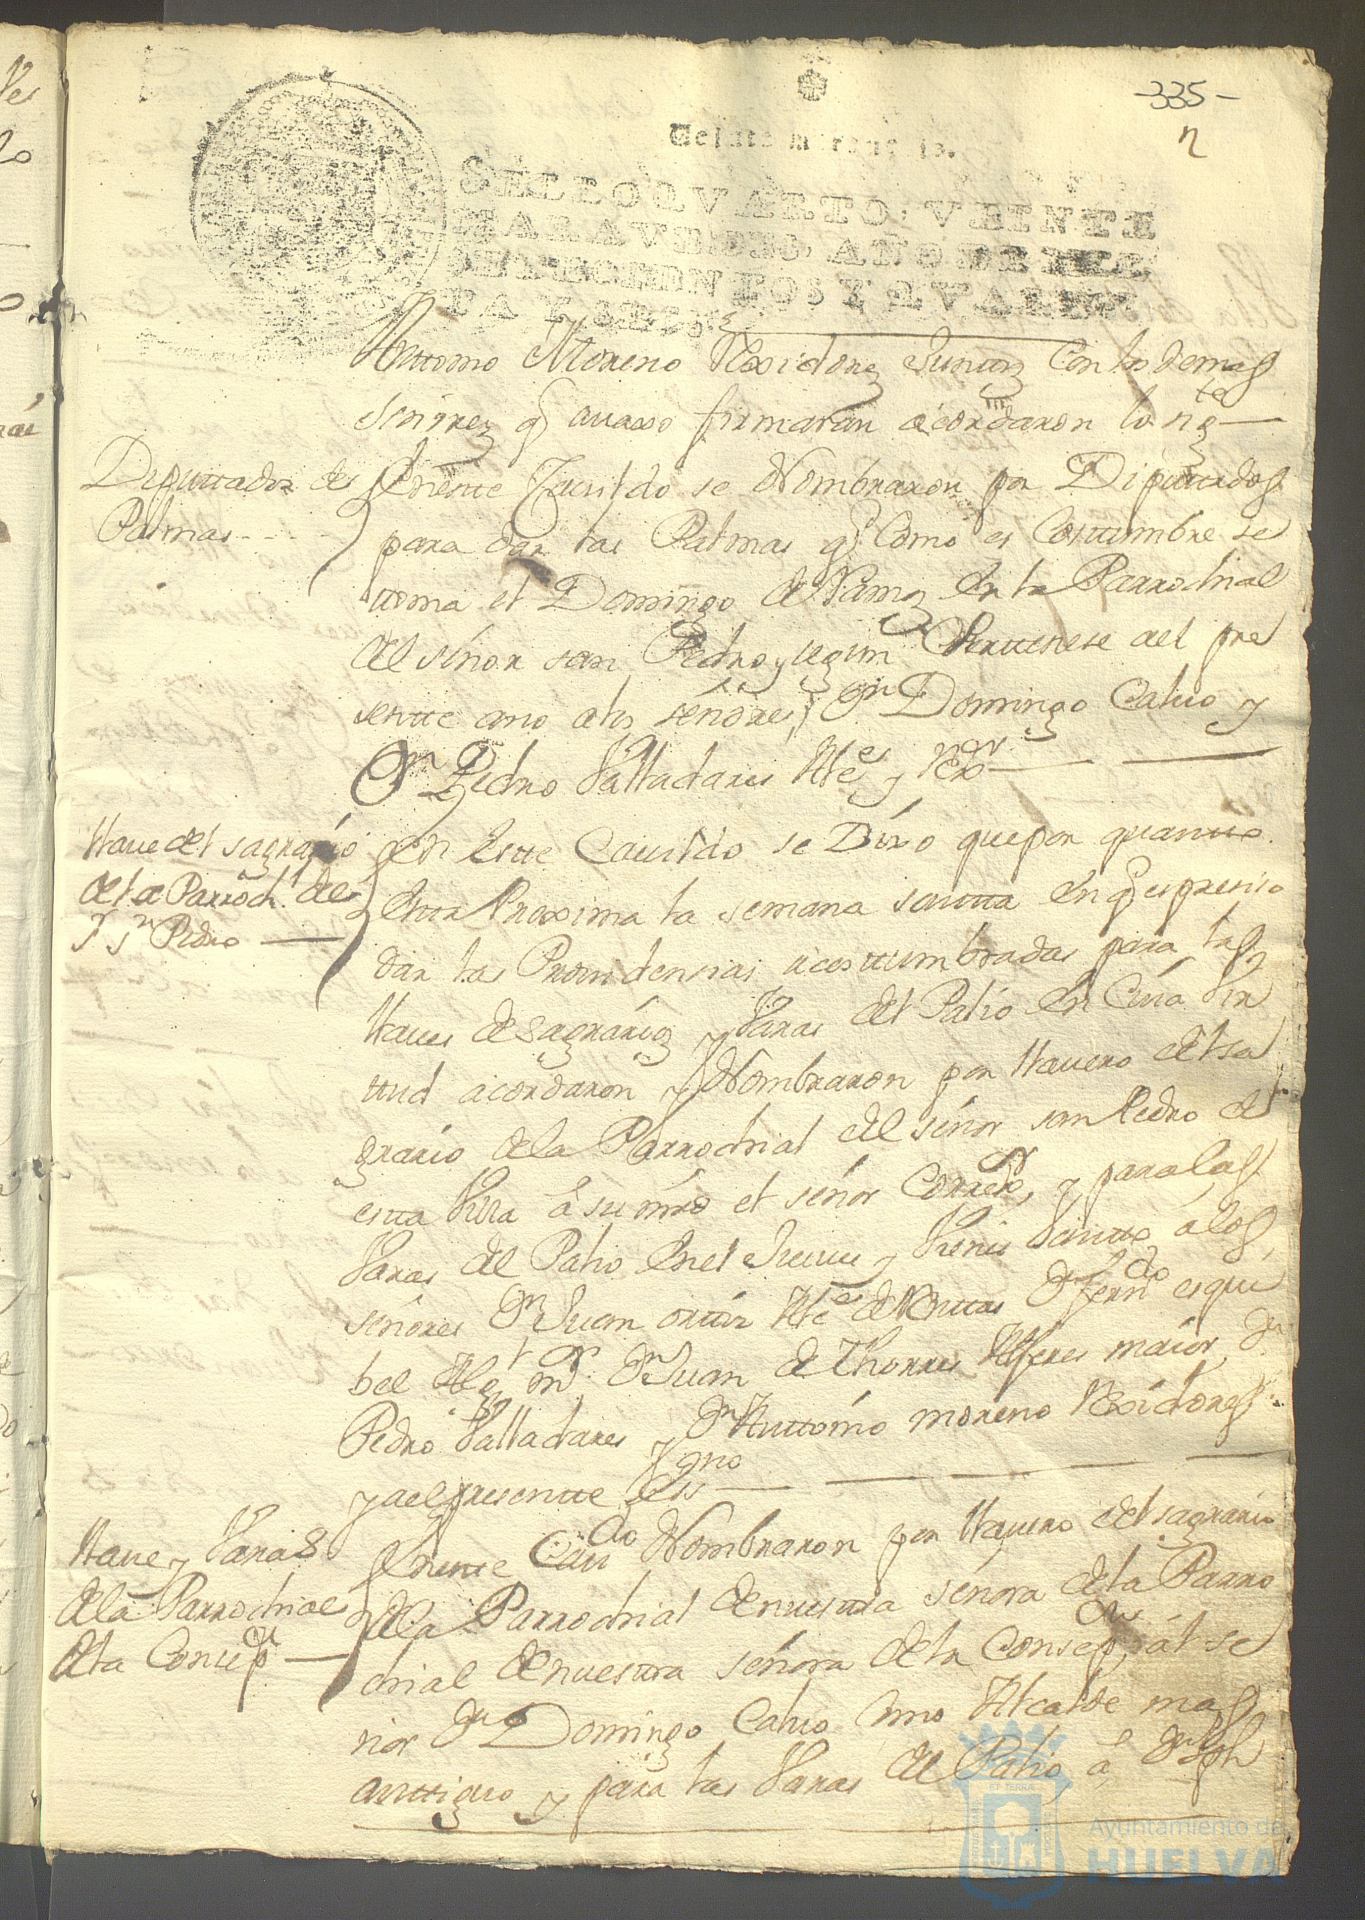 -335-
Veinte maravedis.
SELLO QVARTO, VEINTE
MARAVEDIS, AÑO DE MIL
SETECIENTOS Y QVAREN
TA Y
Anttonio Moreno Rexidorez Junttoz Con los demas
señorez q avaxo firmaran acordaron lo sigte
Deputtados de
Palmas
En este Cavildo se Nombraron por Diputtados
para dar las Palmas q Como es Costtumbre se
ttoma el Domingo de Ramoz En la Parrochial
del señor san Pedro y segun Perttenese del pre
sentte año a los señores Dn Domingo Calvo y
Dn Pedro Valladares Alces y Rexor
Llave del sagrario
de la Parroch. del
Sr Sn Pedro
En Estte Cavildo se Dixo que por quantto
Estta Proxima la semana santta En q es presiso
dar las Providensias acosttumbradas para las
llaves de sagrarioz y Varas del Palio En Cuia Vir
ttud acordaron y Nombraron por llavero del sa
grario de la Parrochial del señor san Pedro de
estta Villa â su mrd el señor Correxor, y para las
Varas del Palio En el Jueves y Viernes Santto a los
señores Dn Juan orttiz Alce de Venttas Dn Ferndo esqui
bel Alg mr Dn Juan de Thorres Alferes maior, Dn
Pedro Valladares y Dn Anttonio moreno Rexidores
y a el presentte Essno
Llave y Varas
de la Parrochial
de la Consepn
En este Cavdo Nombraron por llavero del sagrario
de la Parrochial de nuestra señora de la Parro
chial de nuestra señora de la Consepn al se
ñor Dn Domingo Calvo Como Alcalde mas
anttiguo y para las Varas del Palio â Dn Jph
Ayuntamiento de
HUELVA